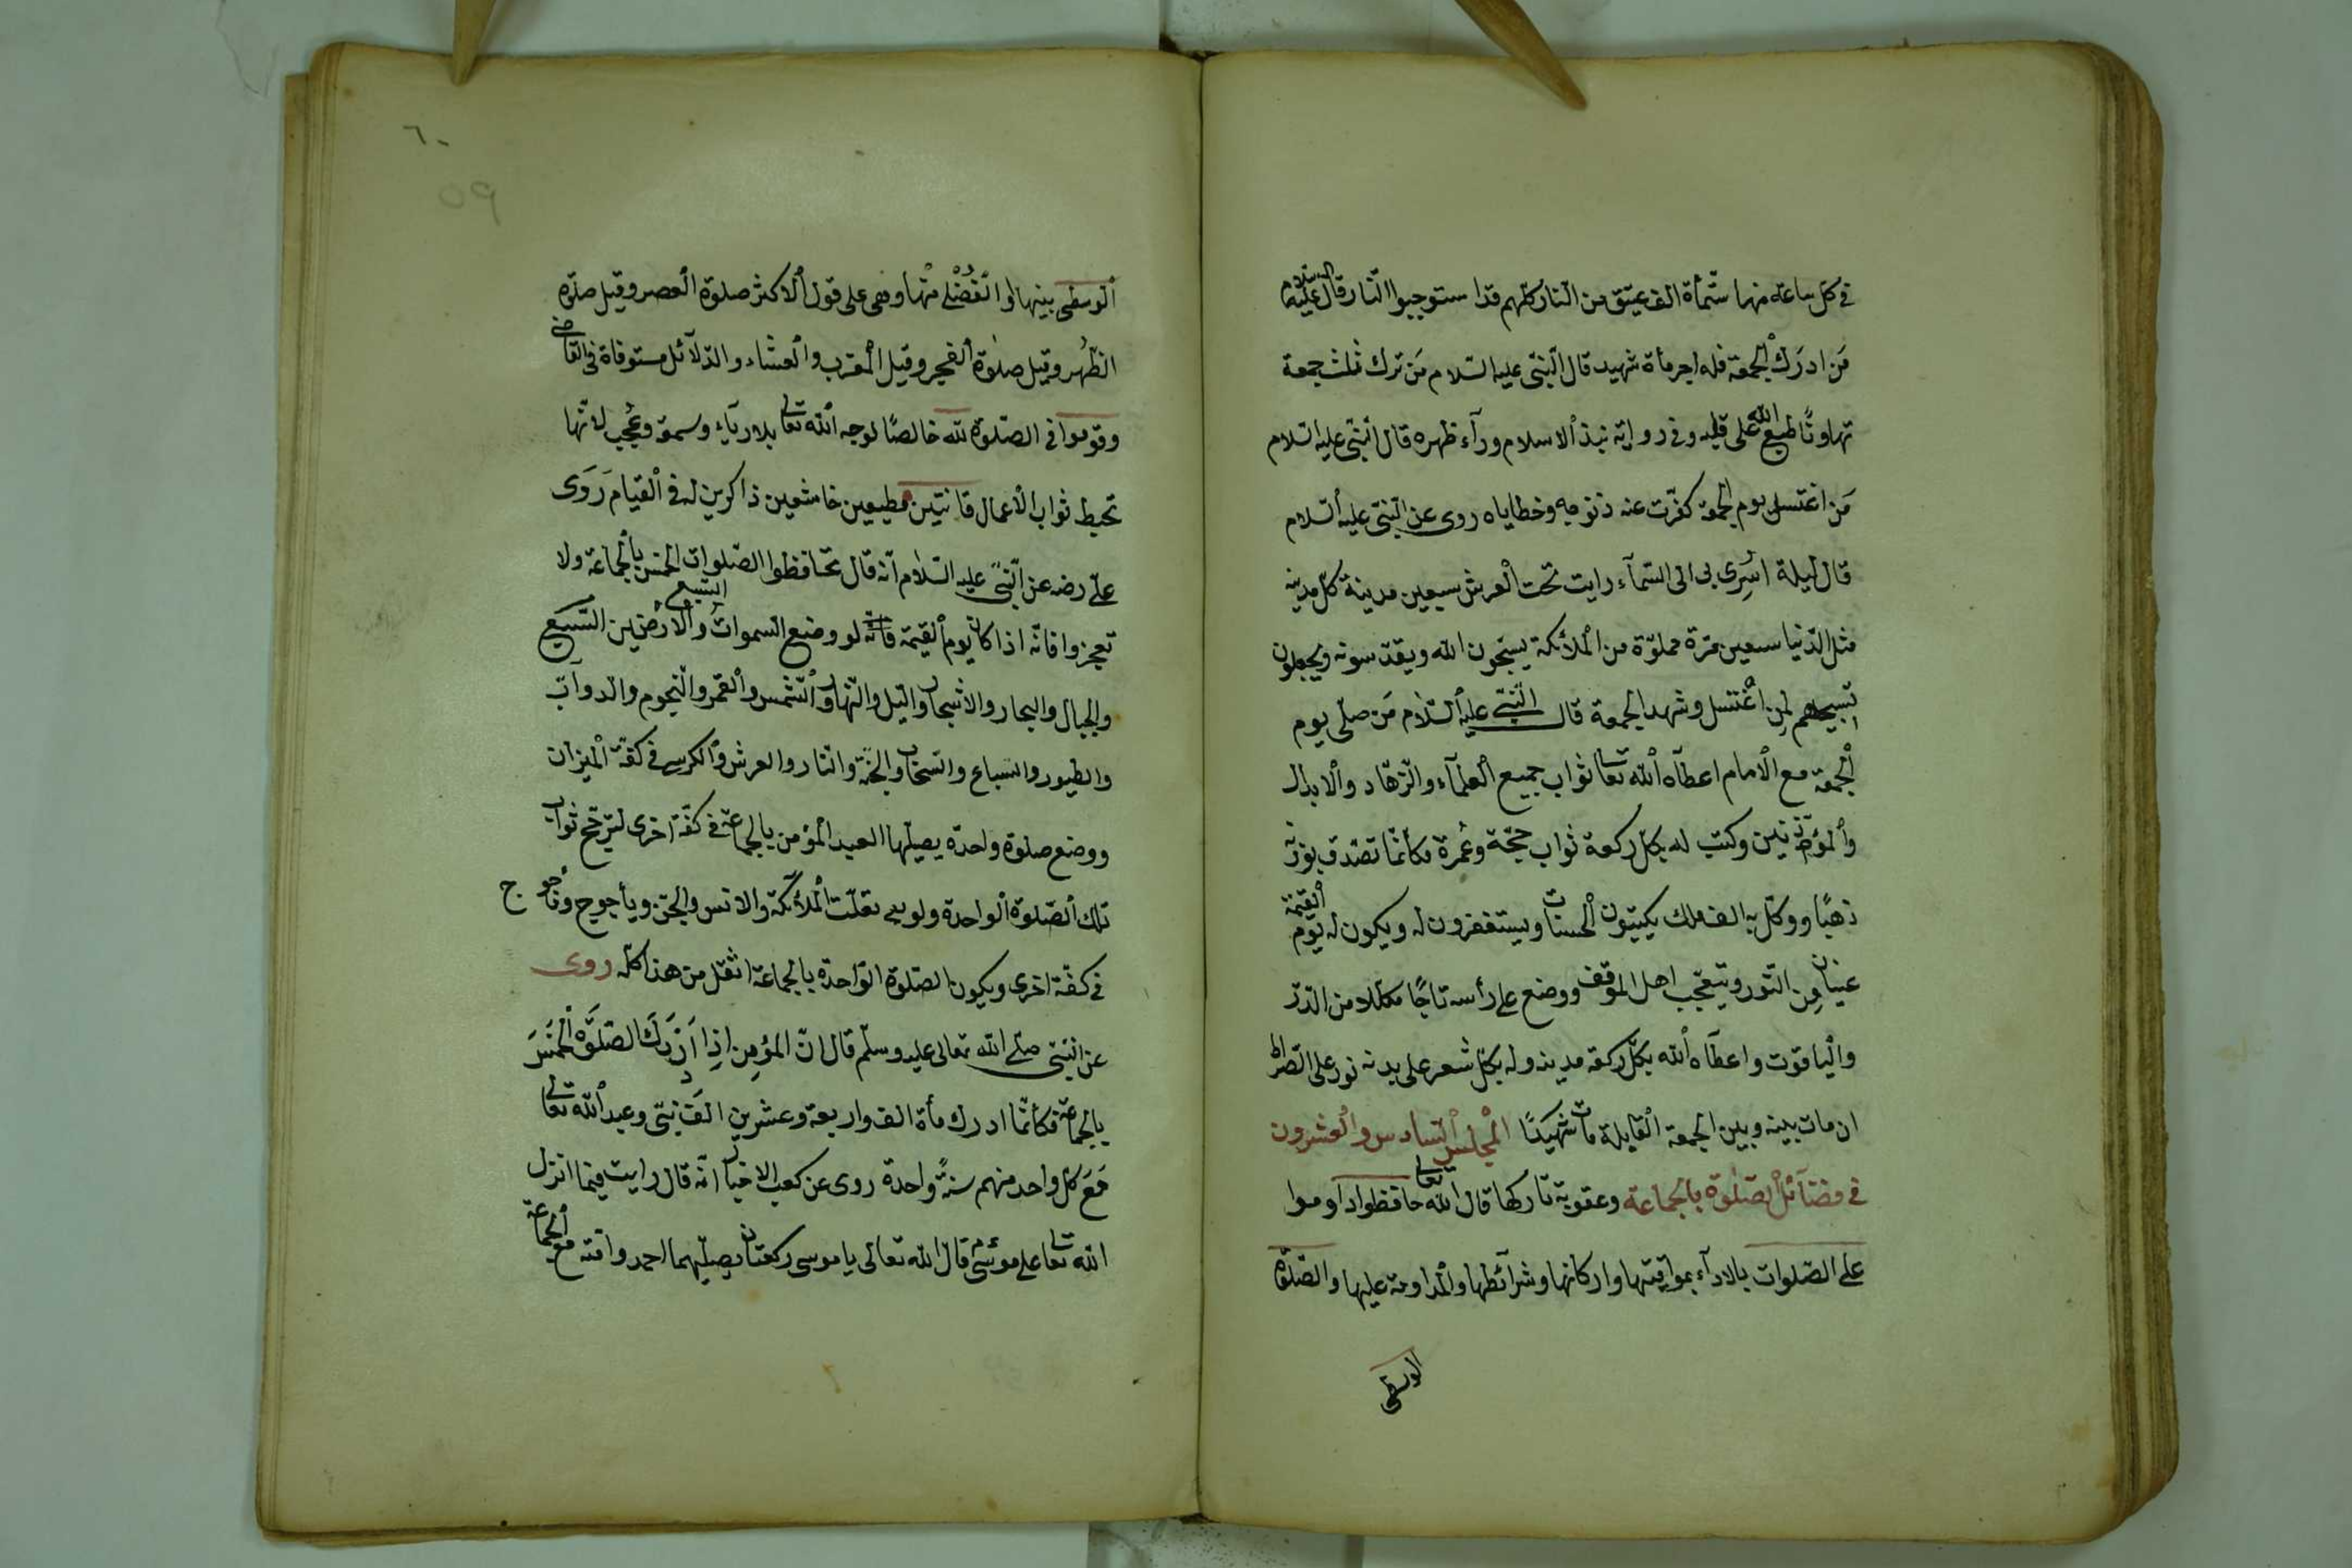 في كل ساعة منها ستمأة الف عتيق من النار كلهم قد استوجبوا النار قال عليه السلام
من ادرك الجمعة فله اجر مأة شهيد قال النبى عليه السلام من ترك ثلث جمعة
تهاونًا طبع الله على قلبه وفى رواية نبذ الاسلام ورآء ظهره قال النبى عليه السلام
من اغتسل يوم الجمعة كفّرت عنه ذنوبه وخطاياه روى عن النبى عليه السلام
قال ليلة اسرى بى الى السمآء رايت تحت العرش سبعين مدينة كل مدينة
مثل الدنيا سبعين مرة مملوّة من الملائكة يسبحون الله ويقدسونه ويجعلون
تسبيحهم لمن اغتسل وشهد الجمعة قال النبى عليه السلام من صلى يوم
الجمعة مع الامام اعطاه الله تعا ثواب جميع العلمآء والزهاد والابدال
والمؤذنين وكتب له بكل ركعة ثواب حجة وعمرة فكانما تصدق بوزنه
ذهبًا ووكل به الف ملك يكتبون الحسنات ويستغفرون له ويكون له يوم القيمة
عينان من النور ويتعجب اهل الموقف ووضع على رأسه تاجًا مكللا من الدرّ
والياقوت واعطاه الله بكل ركعة مدينة وله بكل شعر على بدنه نور على الصراط
ان مات بينه وبين الجمعة القابلة مات شهيدًا المجلس السادس والعشرون
في فضآئل الصلوة بالجماعة وعقوبة تاركها قال الله تعا حافظوا داوموا
على الصلوات بالادآء بمواقيتها واركانها وشرآئطها والمداومة عليها والصلوة
الوسطى
٦٠
٥٩
الوسطى بينها وا لفضلى منها وهى على قول الاكثر صلوة العصر وقيل صلوة
الظهر وقيل صلوة الفجر وقيل المغرب والعشاء والدلآئل مستوفاة فى القاضى
وقوموا فى الصلوة لله خالصًا لوجه الله تعا بلا ريآء وسمعة وعجب لانها
تحبط ثواب الاعمال قانتين مطيعين خاشعين ذاكرين له فى القيام روى
على رضه عن النبى عليه السلام انه قال حافظوا الصلوات الخمس بالجماعة ولا
تعجزوا فانه اذا كان يوم القيمة فانه لو وضع السموات السبع والارضين السبع
والجبال والبحار والاشجار والليل والنهار والشمس والقمر والنجوم والدوآب
والطيور والسباع والسحاب والجنة والنار والعرش والكرسى فى كفة الميزان
ووضع صلوة واحدة يصليها العبد المؤمن بالجماعة فى كفة اخرى ليرجح ثواب
تلك الصلوة الواحدة ولو تعلقت الملائكة والانس والجن ويأجوج ومأجوج
فى كفة اخرى ويكون الصلوة الواحدة بالجماعة اثقل من هذا كله روى
عن النبى صلى الله تعالى عليه وسلم قال ان المؤمن اذا ادرك الصلوة الخمس
بالجماعة فكأنما ادرك مأة الف واربعة وعشرين الف نبى وعبد الله تعالى
مع كل واحد منهم سنة واحدة روى عن كعب الاخبار انه قال رايت فيما انزل
الله تعا على موسى قال الله تعالى يا موسى ركعتان يصليهما احمد وامته مع الجماعة